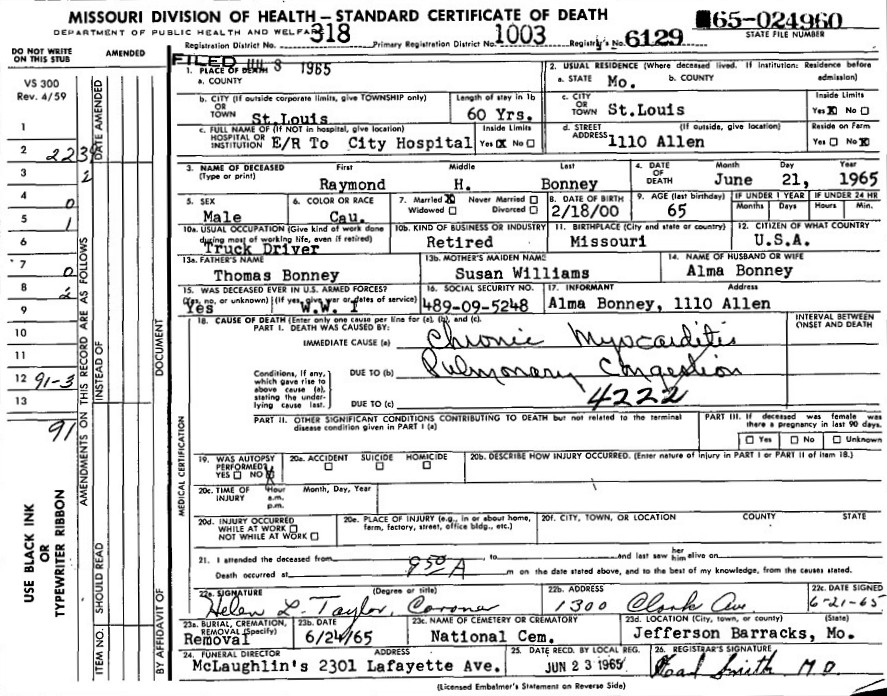 MISSOURI DIVISION OF HEALTH — STANDARD CERTIFICATE OF DEATH
65-024960
DEPARTMENT OF PUBLIC HEALTH AND WELFARE
STATE FILE NUMBER
Registration District No. 318 Primary Registration District No. 1003 Registrar's No. 6129
DO NOT WRITE ON THIS STUB
AMENDED
VS 300
Rev. 4/59
1
2 2239
3 2
4 0
5 1
6
7 0
8 2
9
10
11
12 91-3
13
91
USE BLACK INK
OR
TYPEWRITER RIBBON
AMENDMENTS ON THIS RECORD ARE AS FOLLOWS
DATE AMENDED
INSTEAD OF
SHOULD READ
ITEM NO.
DOCUMENT
MEDICAL CERTIFICATION
BY AFFIDAVIT OF
FILED 3 1965
1. PLACE OF DEATH
a. COUNTY
2. USUAL RESIDENCE (Where deceased lived. If institution: Residence before admission)
a. STATE Mo. b. COUNTY
b. CITY (If outside corporate limits, give TOWNSHIP only)
OR
TOWN St.Louis
Length of stay in 1b
60 Yrs.
c. CITY
OR
TOWN St.Louis
Inside Limits
Yes X No
c. FULL NAME OF (If NOT in hospital, give location)
HOSPITAL OR
INSTITUTION E/R To City Hospital
Inside Limits
Yes X No
d. STREET (If outside, give location)
ADDRESS 1110 Allen
Reside on Farm
Yes No X
3. NAME OF DECEASED
(Type or print)
First Middle Last
Raymond H. Bonney
4. DATE OF DEATH
Month Day Year
June 21, 1965
5. SEX
Male
6. COLOR OR RACE
Cau.
7. Married X Never Married
Widowed Divorced
8. DATE OF BIRTH
2/18/00
9. AGE (last birthday)
65
IF UNDER 1 YEAR
Months Days
IF UNDER 24 HR
Hours Min.
10a. USUAL OCCUPATION (Give kind of work done during most of working life, even if retired)
Truck Driver
10b. KIND OF BUSINESS OR INDUSTRY
Retired
11. BIRTHPLACE (City and state or country)
Missouri
12. CITIZEN OF WHAT COUNTRY
U.S.A.
13a. FATHER'S NAME
Thomas Bonney
13b. MOTHER'S MAIDEN NAME
Susan Williams
14. NAME OF HUSBAND OR WIFE
Alma Bonney
15. WAS DECEASED EVER IN U.S. ARMED FORCES?
(Yes, no, or unknown) (If yes, give war or dates of service)
Yes W.W. I
16. SOCIAL SECURITY NO.
489-09-5248
17. INFORMANT Address
Alma Bonney, 1110 Allen
18. CAUSE OF DEATH (Enter only one cause per line for (a), (b), and (c).
PART I. DEATH WAS CAUSED BY:
INTERVAL BETWEEN ONSET AND DEATH
IMMEDIATE CAUSE (a) Chronic Myocarditis
Conditions, if any, which gave rise to above cause (a), stating the underlying cause last.
DUE TO (b) Pulmonary Congestion
DUE TO (c) 4222
PART II. OTHER SIGNIFICANT CONDITIONS CONTRIBUTING TO DEATH but not related to the terminal disease condition given in PART I (a)
PART III. If deceased was female was there a pregnancy in last 90 days.
Yes No Unknown
19. WAS AUTOPSY PERFORMED?
YES NO X
20a. ACCIDENT SUICIDE HOMICIDE
20b. DESCRIBE HOW INJURY OCCURRED. (Enter nature of injury in PART I or PART II of item 18.)
20c. TIME OF INJURY
Hour a.m. p.m.
Month, Day, Year
20d. INJURY OCCURRED
WHILE AT WORK
NOT WHILE AT WORK
20e. PLACE OF INJURY (e.g., in or about home, farm, factory, street, office bldg., etc.)
20f. CITY, TOWN, OR LOCATION COUNTY STATE
21. I attended the deceased from to and last saw her him alive on
Death occurred at 9 50 A m on the date stated above, and to the best of my knowledge, from the causes stated.
22a. SIGNATURE (Degree or title)
Helen L. Taylor, Coroner
22b. ADDRESS
1300 Clark Ave.
22c. DATE SIGNED
6-21-65
23a. BURIAL, CREMATION, REMOVAL (Specify)
Removal
23b. DATE
6/24/65
23c. NAME OF CEMETERY OR CREMATORY
National Cem.
23d. LOCATION (City, town, or county) (State)
Jefferson Barracks, Mo.
24. FUNERAL DIRECTOR ADDRESS
McLaughlin's 2301 Lafayette Ave.
25. DATE RECD. BY LOCAL REG.
JUN 23 1965
26. REGISTRAR'S SIGNATURE
Smith M.D.
(Licensed Embalmer's Statement on Reverse Side)